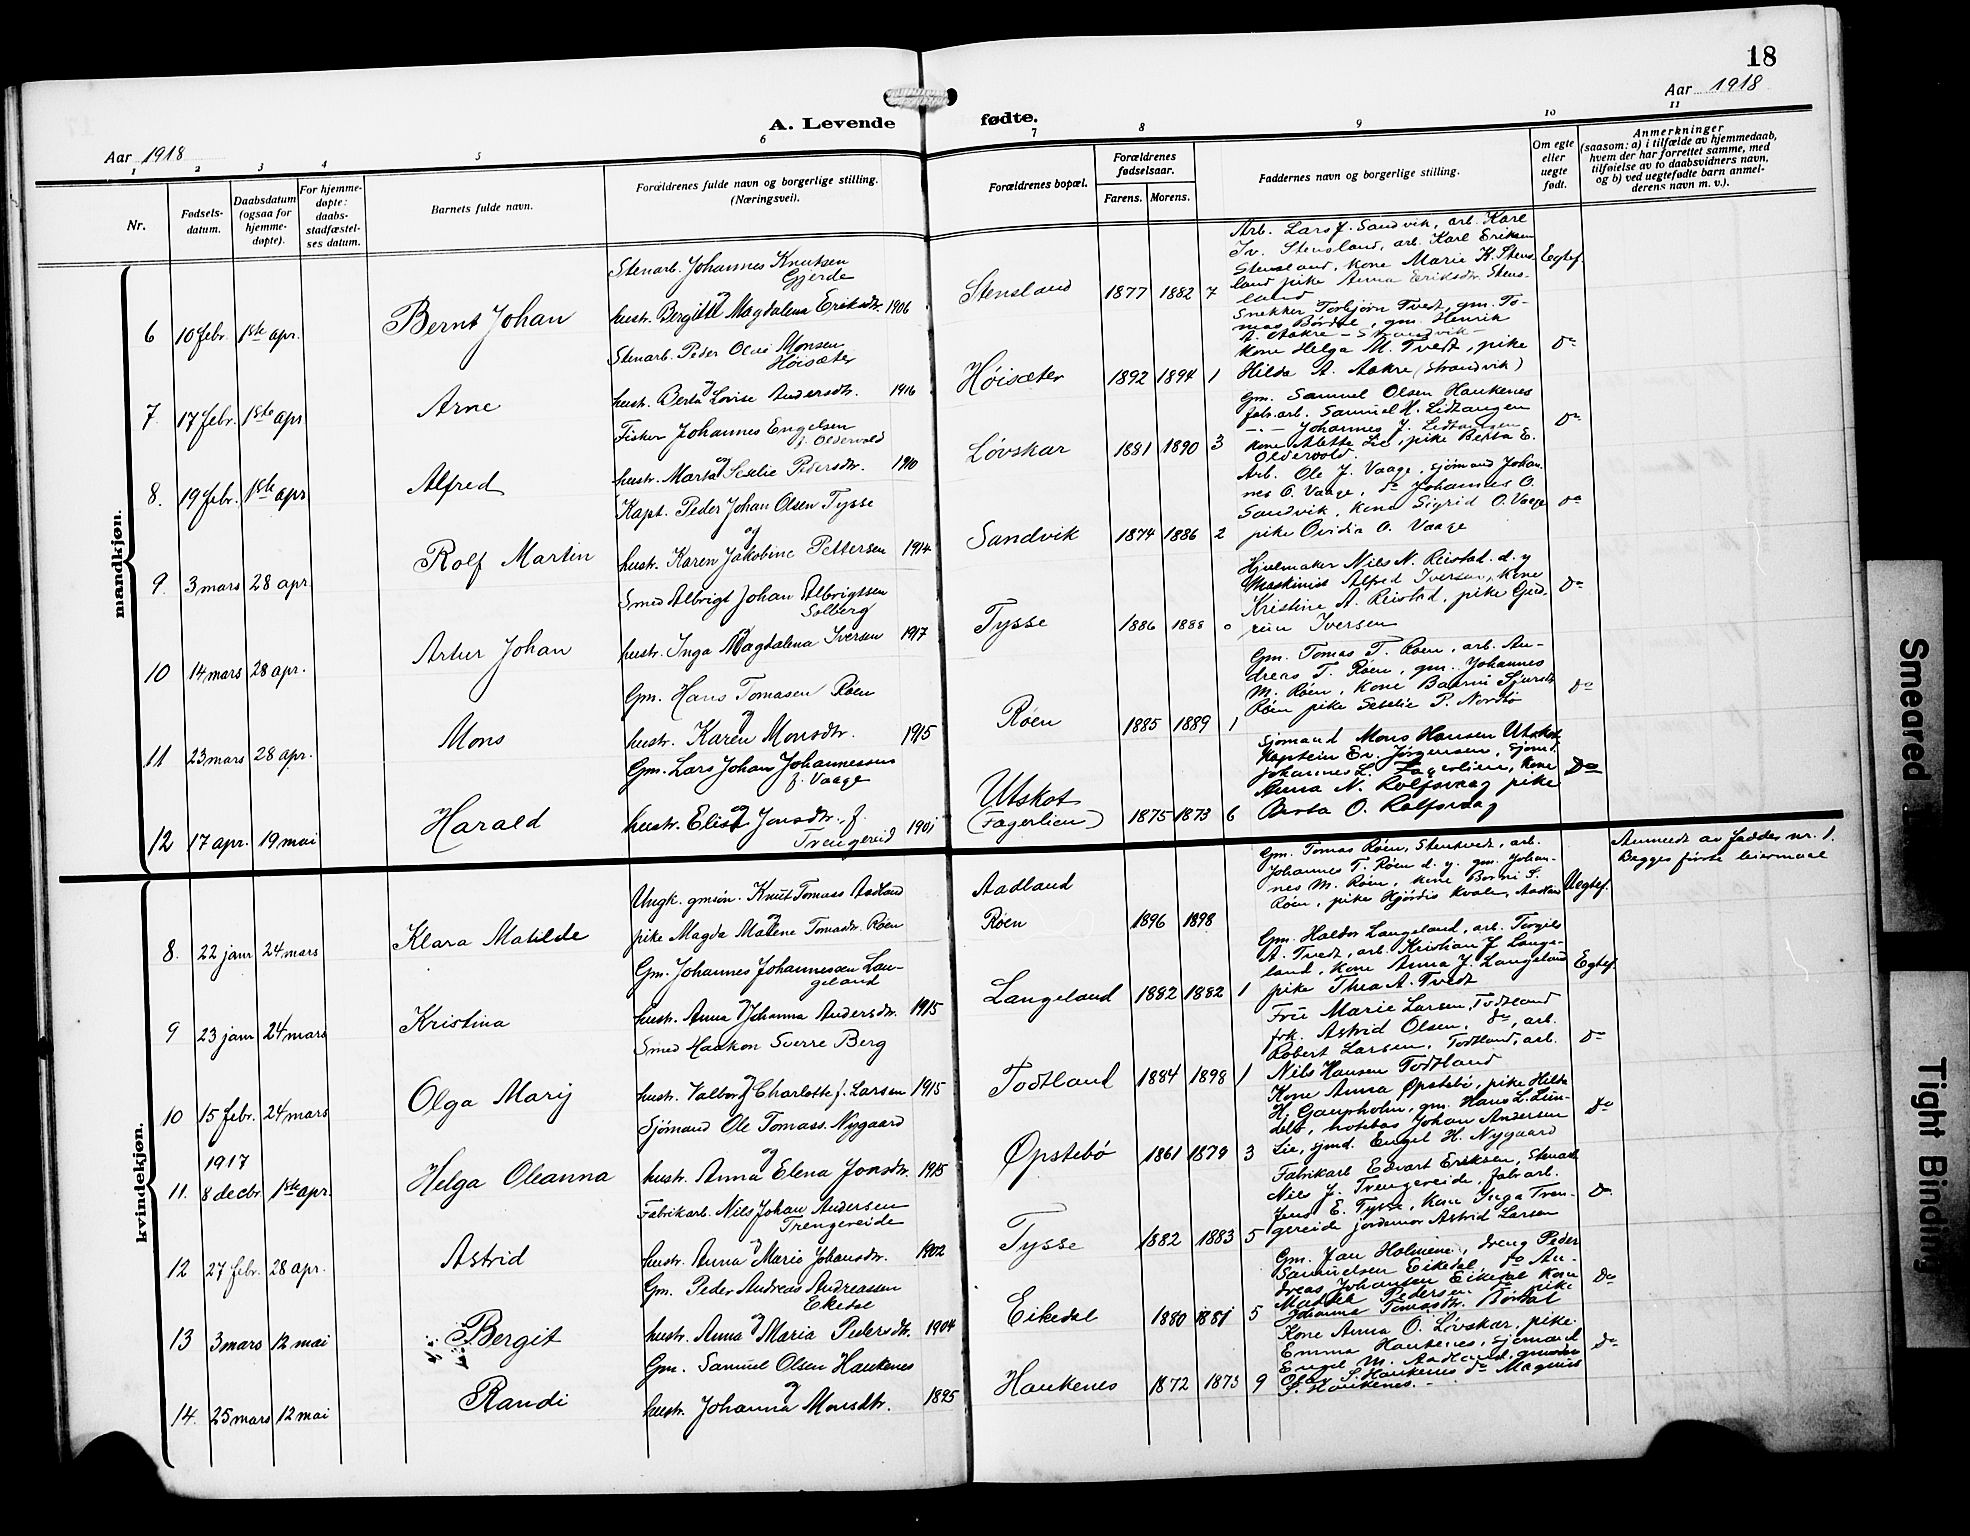 18
Aar 1918
A. Levende fødte.
Aar 1918
1 2 3 4 5 6 7 8 9 10 11
Nr.
Fødsels-
datum.
Daabsdatum
(ogsaa for
hjemme-
døpte).
For hjemme-
døpte:
daabs-
stadfæstel-
ses datum.
Barnets fulde navn.
Forældrenes fulde navn og borgerlige stilling.
(Næringsvei).
Forældrenes bopæl.
Forældrenes
fødselsaar.
Farens. Morens.
Faddernes navn og borgerlige stilling.
Om egte
eller
uegte
født.
Anmerkninger
(saasom: a) i tilfælde av hjemmedaab,
hvem der har forrettet samme, med
tilføielse av to daabsvidners navn,
og b) ved uegtefødte barn anmel-
derens navn m. v.).
mandkjøn.
6 10 febr. 1ste apr. Bernt Johan
Stenarb. Johannes Knutsen
Gjerde
og
hustr. Bergitte Magdalena Eriksdtr. 1906
Stensland 1877 1882 7
Arb. Lars J. Sandvik, arb. Kare
Iv. Stensland, arb. Karl Eriksen
Stensland, kone Marie K. Stens-
land pike Anna Eriksdtr. Stens-
land
Egtef.
7. 17 febr. 1ste apr Arne
Stenarb. Peder Olai Monsen
Høisæter
og
hustr. Berta Lovise Andersdtr. 1916
Høisæter 1892 1894 1
Snekker Torbjørn Tvedt, gm. To-
mas Børdal, gm. Henrik
A. Aakre - Strandvik -
kone Helga M. Tvedt, pike
Hilda A. Aakre (Strandvik)
do
8. 19 febr. 1ste apr Alfred
Fisker Johannes Engelsen
f. Oldervold
og
hustr. Marta Seselie Pedersdtr. 1910
Løvskar 1881 1890 3
Gm. Samuel Olsen Haukenes
fabr.arb. Samuel H. Lidtangen
-"- Johannes J. Lidtangen
kone Alette Lie, pike Berta E.
Oldervold.
do
9. 3 mars 28 apr. Rolf Martin
Kapt. Peder Johan Olsen Tysse
og
hustr. Karen Jakobine Pettersen 1914
Sandvik 1874 1886 2
Arb. Ole J. Vaage, sjømand Johan
nes O. Vaage, do Johannes O.
Sandvik, kone Sigrid O. Vaage
pike Ovidia O. Vaage
do
10 14 mars 28 apr. Artur Johan
Smed Albrigt Johan Albrigtsen
Solberg
og
hustr. Inga Magdalena Iversen 1917
Tysse 1886 1888 0
Hjulmaker Nils N. Reistad d. y
Maskinist Alfred Iversen, kone
Kristine A. Reistad, pike Gud-
run Iversen
do
11 23 mars 28 apr. Mons
Gm. Hans Tomasen Røen
og
hustr. Karen Monsdtr. 1915
Røen 1885 1889 1
Gm. Tomas T. Røen, arb. An-
dreas T. Røen, gm. Johannes
M. Røen, kone Barni Sjursdtr
Røen pike Seselie P. Nordbø
do
12 17 apr. 19 mai Harald
Gm. Lars Johan Johannessen
f. Vaage
og
hustr. Elise Jonsdtr. f.
Trengereid 1901
Utskot
(Fagerlien) 1875 1873 6
Sjømand Mons Hansen Utskot
Kaptein Er. Jørgensen, sjømd.
Johannes L. Fagerlien, kone
Anna N. Rolfsvaag pike
Berta O. Rolfsvaag
do
kvindekjøn.
8. 22 janr 24 mars Klara Matilde
Ungk. gmsøn. Knut Tomass Aadland
og
pike Magda Malene Tomasdtr. Røen
Aadland
Røen 1896 1898
Gm. Tomas Røen, Stenkvedt, arb.
Johannes T. Røen d. y. gm. Johan-
nes M. Røen, kone Borni S.
Røen, pike Hjørdis Kvale, Aadland
Uegtef.
Anmeldt av fadder nr. 1.
Begges første leiermaal
9 23 janr 24 mars Kristina
Gm. Johannes Johannessen Lan-
geland
og
hustr. Anna Johanna Andersdtr. 1915
Langeland 1882 1882 1
Gm. Haldor Langeland, arb. Torgils
A. Tvedt, arb. Kristian J. Lange-
land, kone Anna J. Langeland
pike Thea A. Tvedt
Egtef.
10 15 febr. 24 mars Olga Marij
Smed Haakon Sverre Berg
og
hustr. Valborg Charlotte f. Larsen 1915
Todtland 1884 1898 1
Fru Marie Larsen, Todtland
frk. Astrid Olsen, do, arb.
Robert Larsen, Todtland, arb.
Nils Hansen Todtland
do
1917
11. 8 decbr. 1ste apr. Helga Oleanna
Sjømand Ole Tomass. Nygaard
og
hustr. Anna Elena Jonsdtr. 1915
Øpstebø 1861 1879 3
Kone Anna Øpstebø, pike Hilda
H. Gaupholm, gm. Hans L. Lun-
delo, notebas Johan Andersen
Lie, sjmd. Engel H. Nygaard
do
12 27 febr. 28 apr. Astrid
Fabrikarb. Nils Johan Andersen
Trengereide
og
hustr. Anna Marie Johansdtr. 1902
Tysse 1882 1883 5
Fabrikarb. Edvart Eriksen, Stenarb
Nils J. Trengereide, fabr.arb.
Jens E. Tysse, kone Inga Tren-
gereide jordmor Astrid Larsen
do.
13 3 mars 12 mai Bergit
Gm. Peder Andreas Andreassen
Ekedal
og
hustr. Anna Maria Pedersdtr. 1904
Eikedal 1880 1881 5
Gm. Jan Holmene, dreng Peder
Samuelsen Eikedal, do An-
dreas Johansen Eikedal kone
Pedersen pike
Johanna Tomasdtr. Børdal
do
14. 25 mars 12 mai Randi
Gm. Samuel Olsen Haukenes
og
hustr. Johanna Monsdtr. 1895
Haukenes 1872 1873 9
Kone Anna O. Løvskar, pike
Emma Haukenes, sjømand
Engel M. Aadland, gmsøn
Olav S. Haukenes do Magnus
S. Haukenes. -
do
Smeared
Tight Binding